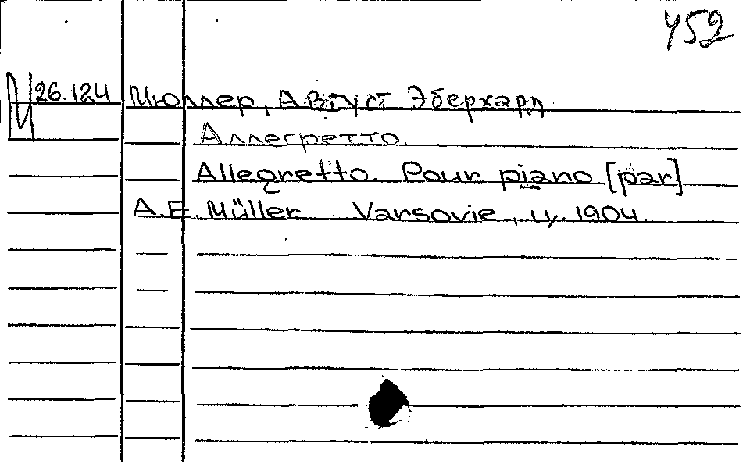 У52
И 26.124 Мюллер, Август Эберхард
Аллегретто.
Allegretto. Pour piano [par]
A.E. Müller Varsovie, ц. 1904.